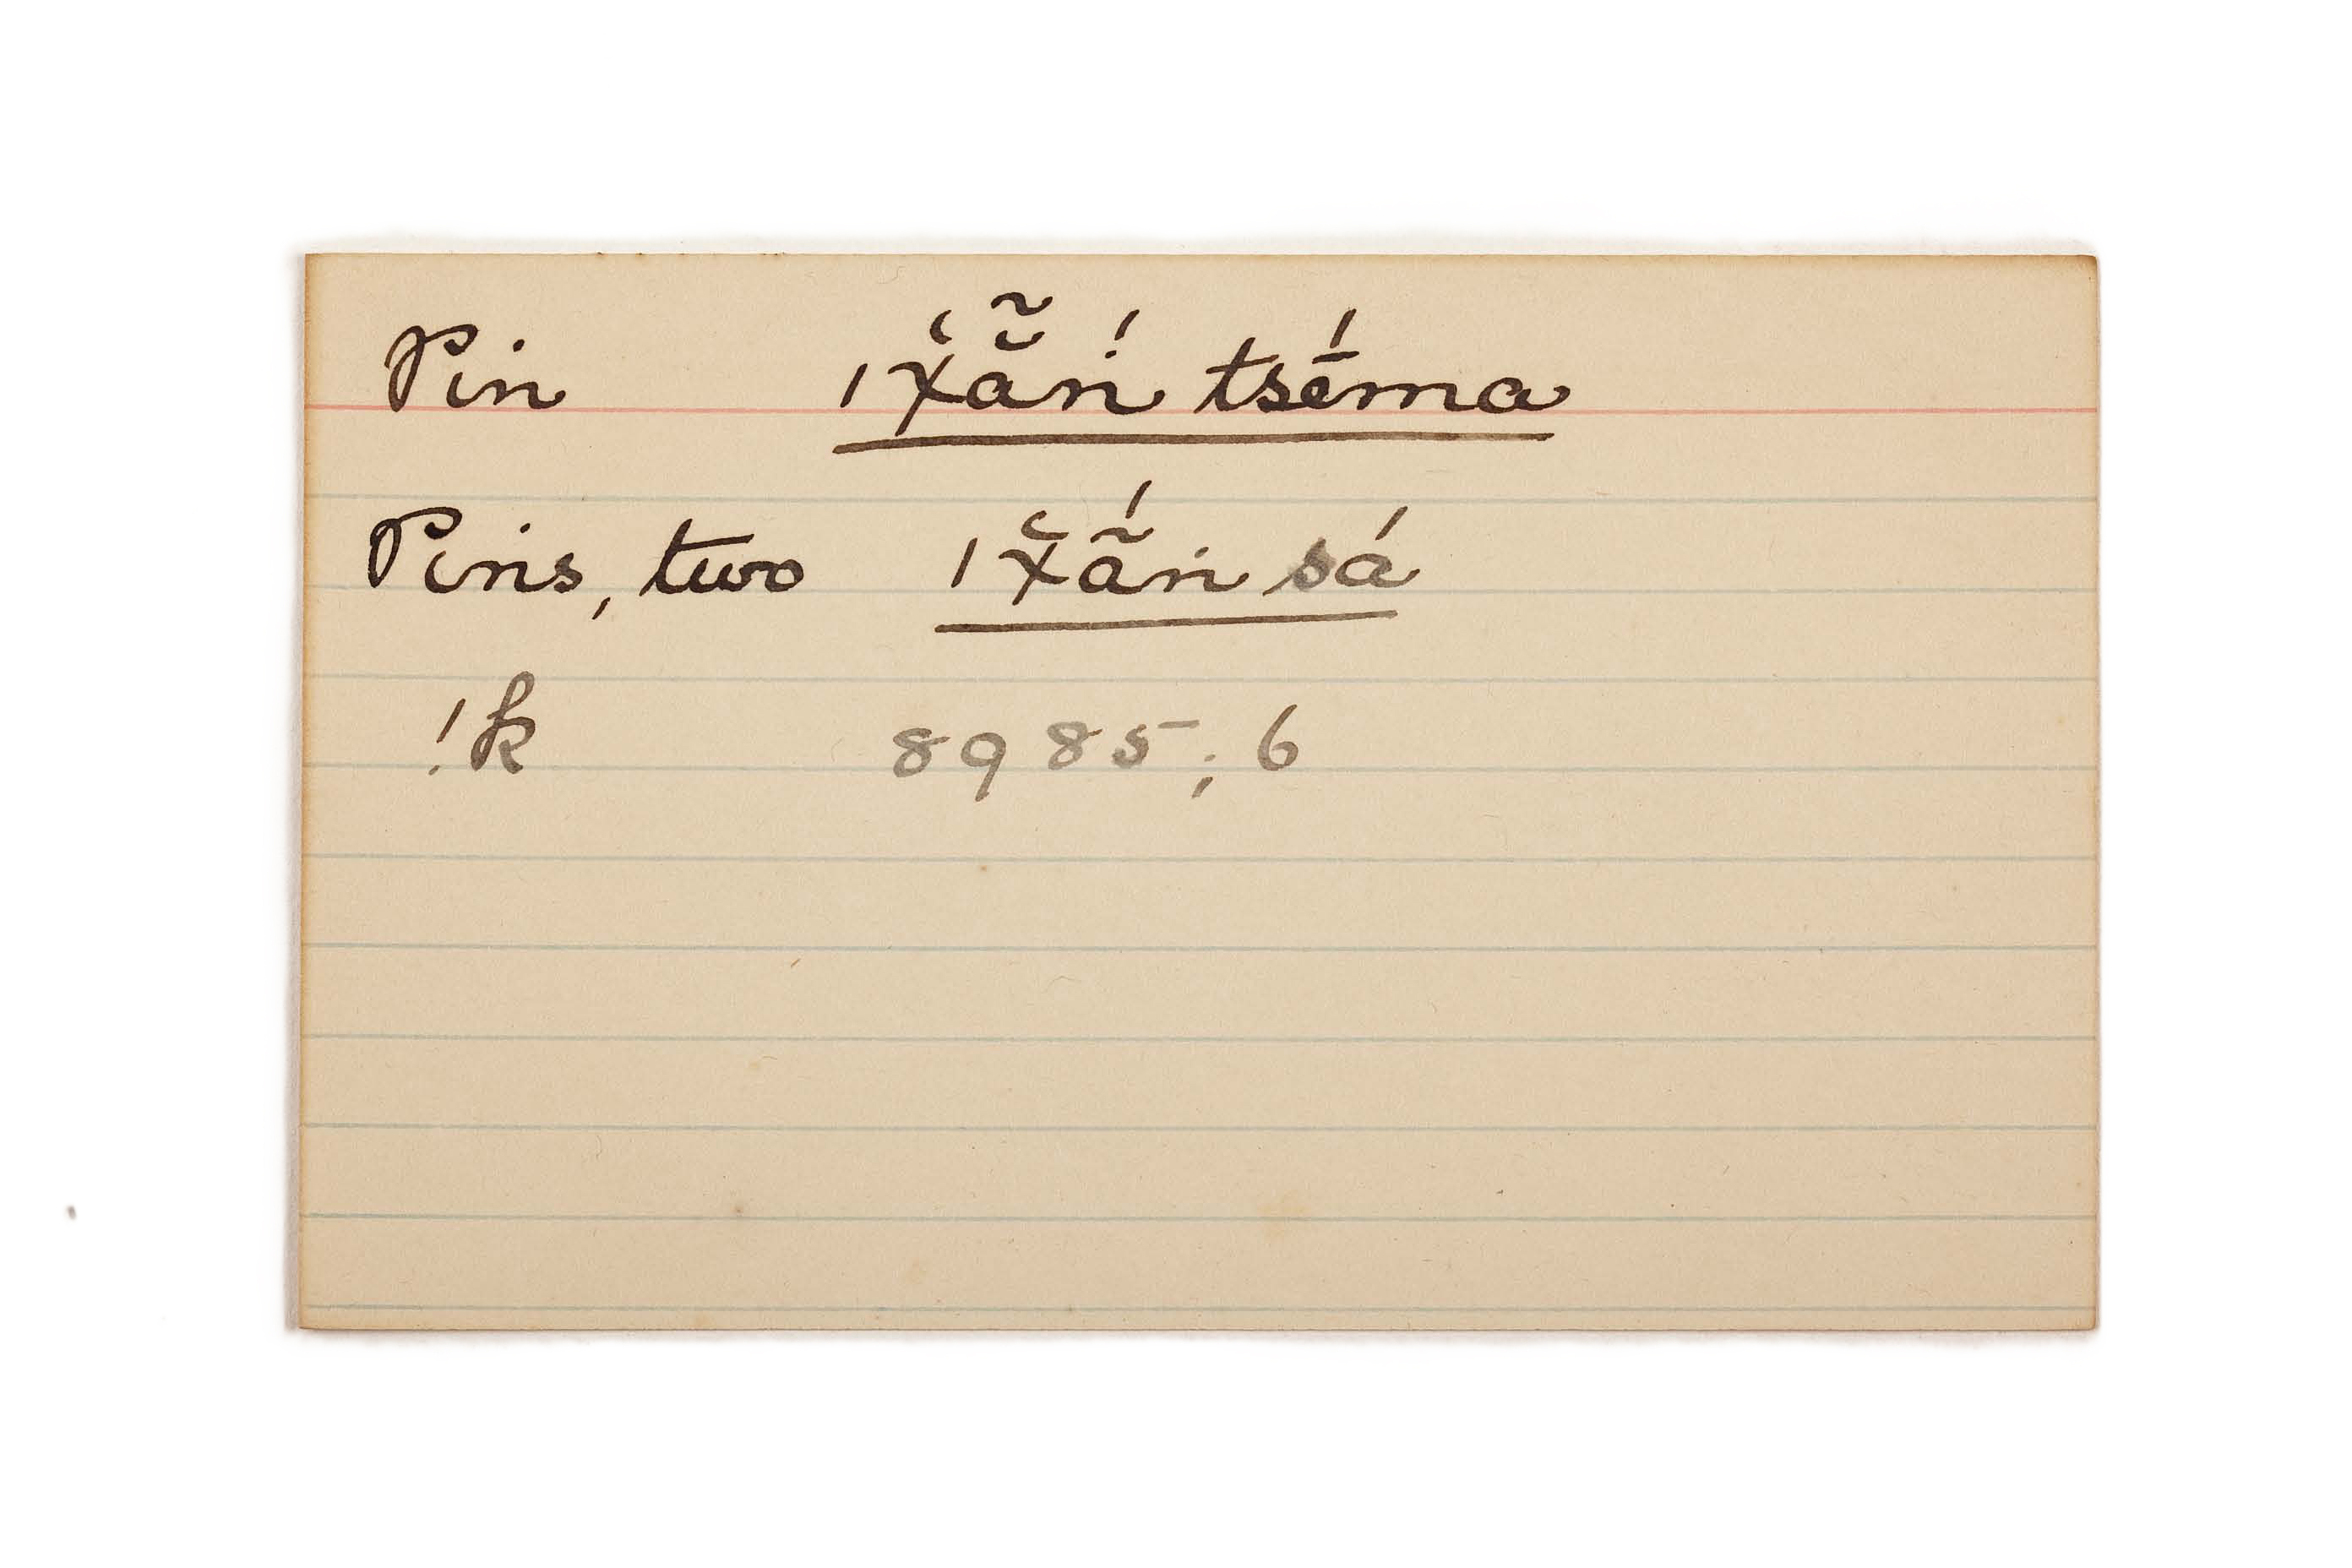 Pin ǀχ̆ã̆ṅ́ tsḗma
Pins, two ǀχ̆ã́ṅ sá
!k 8985; 6